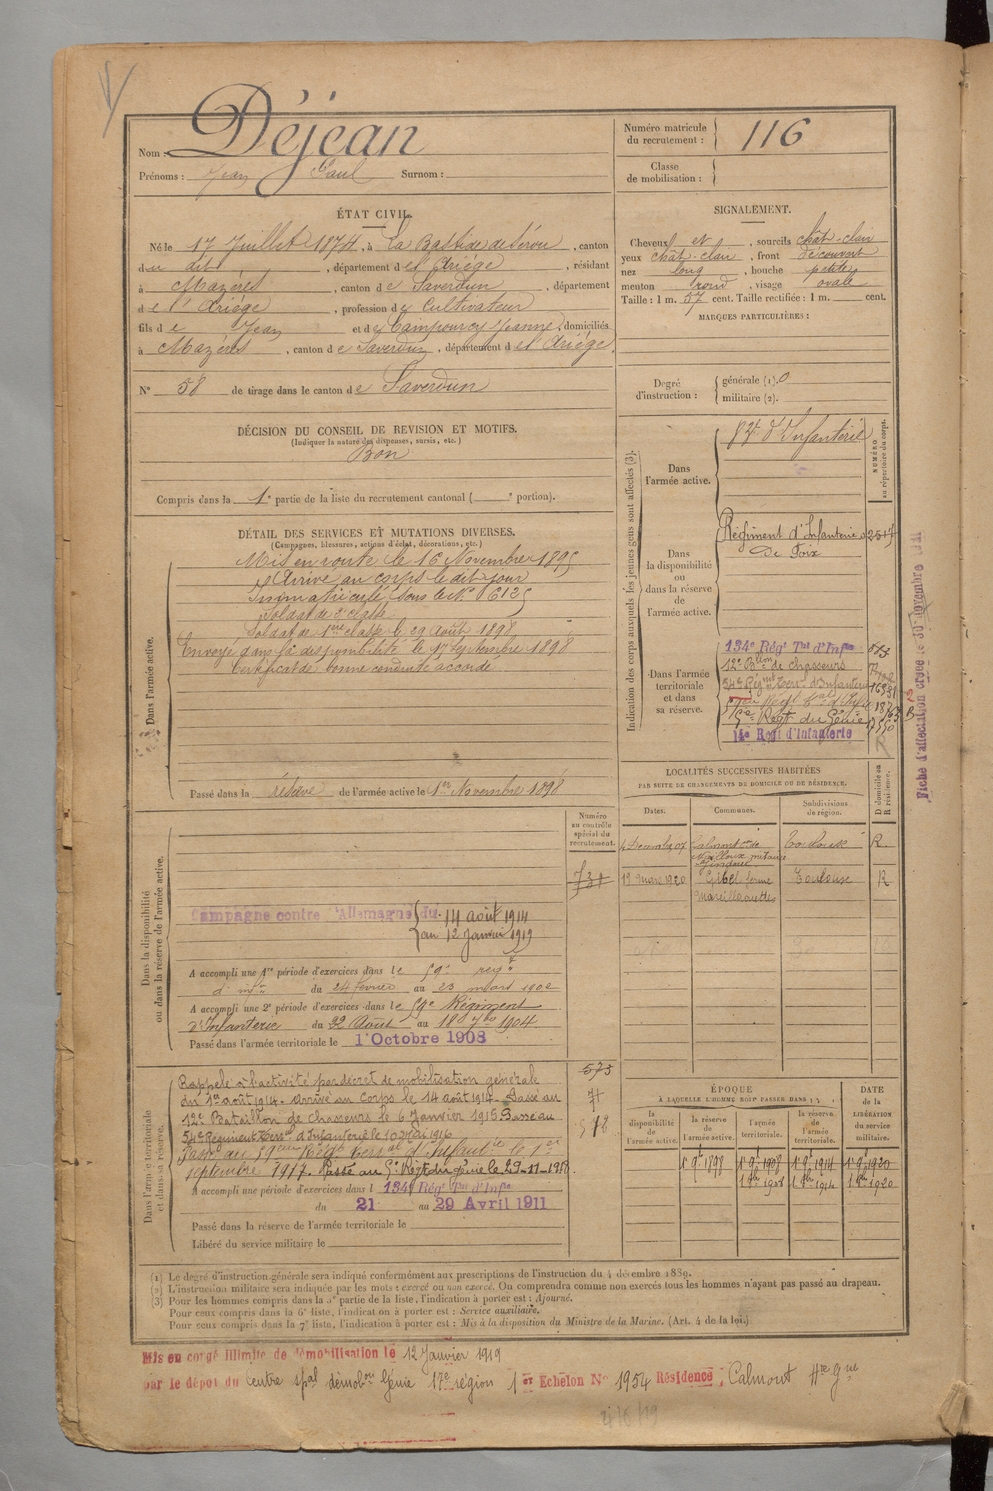 Nom : Déjean
Prénoms : Jean Paul Surnom :
Numéro matricule du recrutement : 116
Classe de mobilisation :
ÉTAT CIVIL.
Né le 17 Juillet 1874, à La Bastide de Sérou, canton
du dit, département de l'Ariège, résidant
à Mazères, canton de Saverdun, département
de l'Ariège, profession de Cultivateur
fils de Jean et de Campourcy Jeanne, domiciliés
à Mazères, canton de Saverdun, département de l'Ariège.
N° 58 de tirage dans le canton de Saverdun
SIGNALEMENT.
Cheveux et, sourcils chât-clair
yeux chât-clair, front découvert
nez long, bouche petite
menton rond, visage ovale
Taille : 1 m. 57 cent. Taille rectifiée : 1 m. cent.
MARQUES PARTICULIÈRES :
Degré d'instruction : générale (1). 0
militaire (2).
DÉCISION DU CONSEIL DE REVISION ET MOTIFS.
(Indiquer la nature des dispenses, sursis, etc.)
Bon
Compris dans la 1e partie de la liste du recrutement cantonal ( e portion).
DÉTAIL DES SERVICES ET MUTATIONS DIVERSES.
(Campagnes, blessures, actions d'éclat, décorations, etc.)
Dans l'armée active.
Mis en route le 16 Novembre 1895
Arrivé au corps le dit jour
Immatriculé sous le N° 6125
Soldat de 2e classe
Soldat de 1ère classe le 29 Août 1898
Envoyé dans la disponibilité le 17 Septembre 1898
Certificat de bonne conduite accordé
Passé dans la réserve de l'armée active le 1er Novembre 1898
Indication des corps auxquels les jeunes gens sont affectés (3).
NUMÉRO au répertoire du corps.
Dans l'armée active.
d'Infanterie
Dans la disponibilité ou dans la réserve de l'armée active.
Régiment d'Infanterie
De Foix
Dans l'armée territoriale et dans sa réserve.
134e Régt Tal d'Infie
12e Btion de chasseurs
54e Régmt Terr. d'Infanterie
Régt du Génie
14e Régt d'Infanterie
R
LOCALITÉS SUCCESSIVES HABITÉES
PAR SUITE DE CHANGEMENTS DE DOMICILE OU DE RÉSIDENCE.
Dates.
Communes.
Subdivisions de région.
D domicile ou R résidence.
Toulouse R.
19 Mars 1920 Toulouse R
Dans la disponibilité ou dans la réserve de l'armée active.
Numéro au contrôle spécial du recrutement.
731
Campagne contre l'Allemagne du 14 août 1914
au 12 Janvier 1919
A accompli une 1re période d'exercices dans le 59e régt
d'inftie du 24 février au 23 mars 1902
A accompli une 2e période d'exercices dans le 59e Régiment
d'Infanterie du 22 Août au 18 7bre 1904
Passé dans l'armée territoriale le 1 Octobre 1908
Dans l'armée territoriale et dans sa réserve.
573
Rappelé à l'activité par décret de mobilisation générale
du 1er août 1914. Arrivé au corps le 14 août 1914. Passé au
12e Bataillon de chasseurs le 6 Janvier 1915 Passé au
54e Régiment Terral d'Infanterie le 10 Mai 1916
Passé au Régt Terral d'Infantie le 1er
septembre 1917. Passé au Régt du Génie le 29-11-1918
A accompli une période d'exercices dans l 134e Régt Tal d'Infie
du 21 au 29 Avril 1911
Passé dans la réserve de l'armée territoriale le
Libéré du service militaire le
ÉPOQUE
À LAQUELLE L'HOMME DOIT PASSER DANS
la disponibilité de l'armée active.
la réserve de l'armée active.
l'armée territoriale.
la réserve de l'armée territoriale.
DATE de la LIBÉRATION du service militaire.
(1) Le degré d'instruction générale sera indiqué conformément aux prescriptions de l'instruction du 4 décembre 1889.
(2) L'instruction militaire sera indiquée par les mots : exercé ou non exercé. On comprendra comme non exercés tous les hommes n'ayant pas passé au drapeau.
(3) Pour les hommes compris dans la 5e partie de la liste, l'indication à porter est : Ajourné.
Pour ceux compris dans la 6e liste, l'indication à porter est : Service auxiliaire.
Pour ceux compris dans la 7e liste, l'indication à porter est : Mis à la disposition du Ministre de la Marine. (Art. 4 de la loi.)
Mis en congé illimité de démobilisation le 12 Janvier 1919
par le dépôt du Centre spal démobon Génie 17e région 1er Echelon N° 1954 Résidence : Calmont Hte Gne